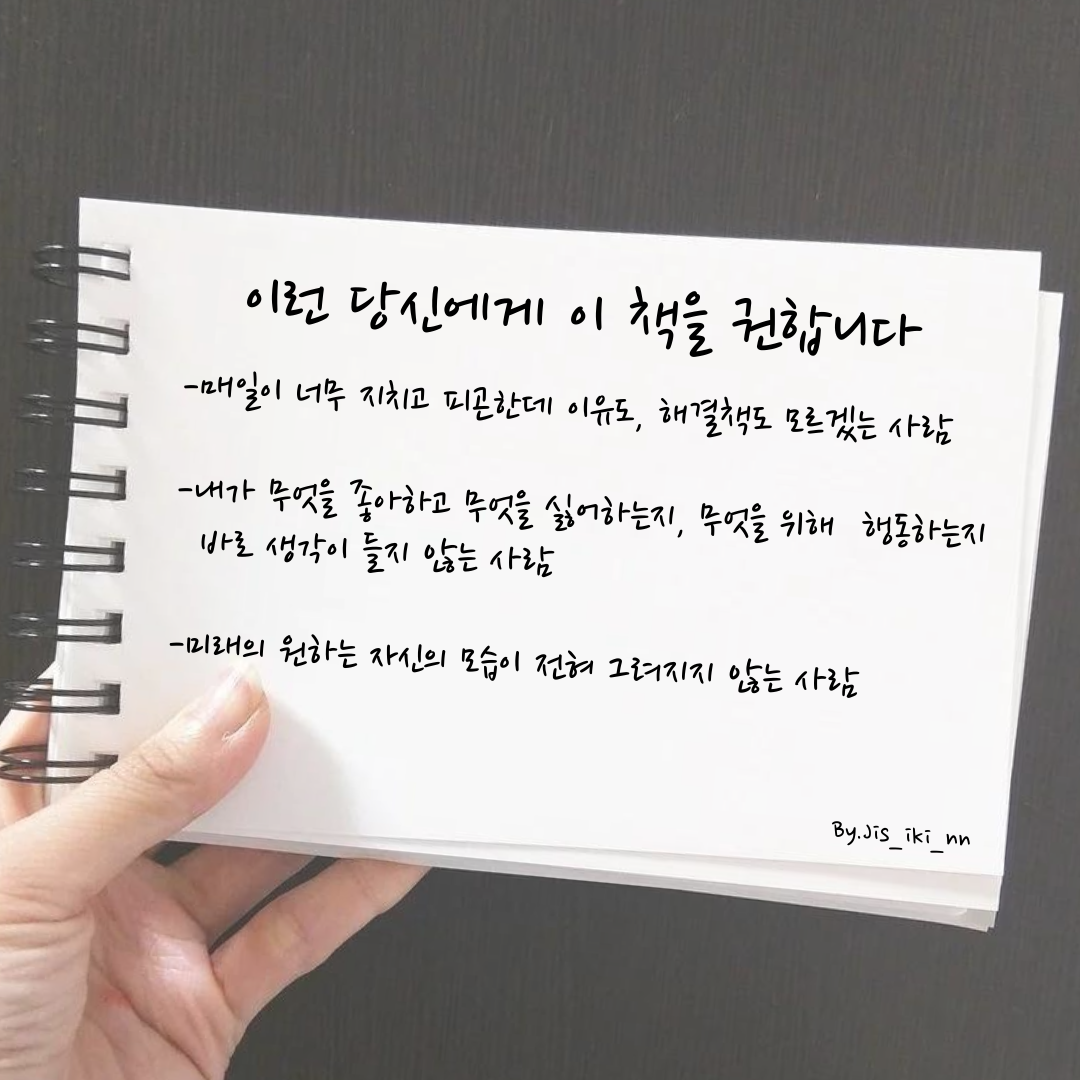 이런 당신에게 이 책을 권합니다
-매일이 너무 지치고 피곤한데 이유도, 해결책도 모르겠는 사람
-내가 무엇을 좋아하고 무엇을 싫어하는지, 무엇을 위해 행동하는지
바로 생각이 들지 않는 사람
-미래의 원하는 자신의 모습이 전혀 그려지지 않는 사람
By.Jis_iki_nn